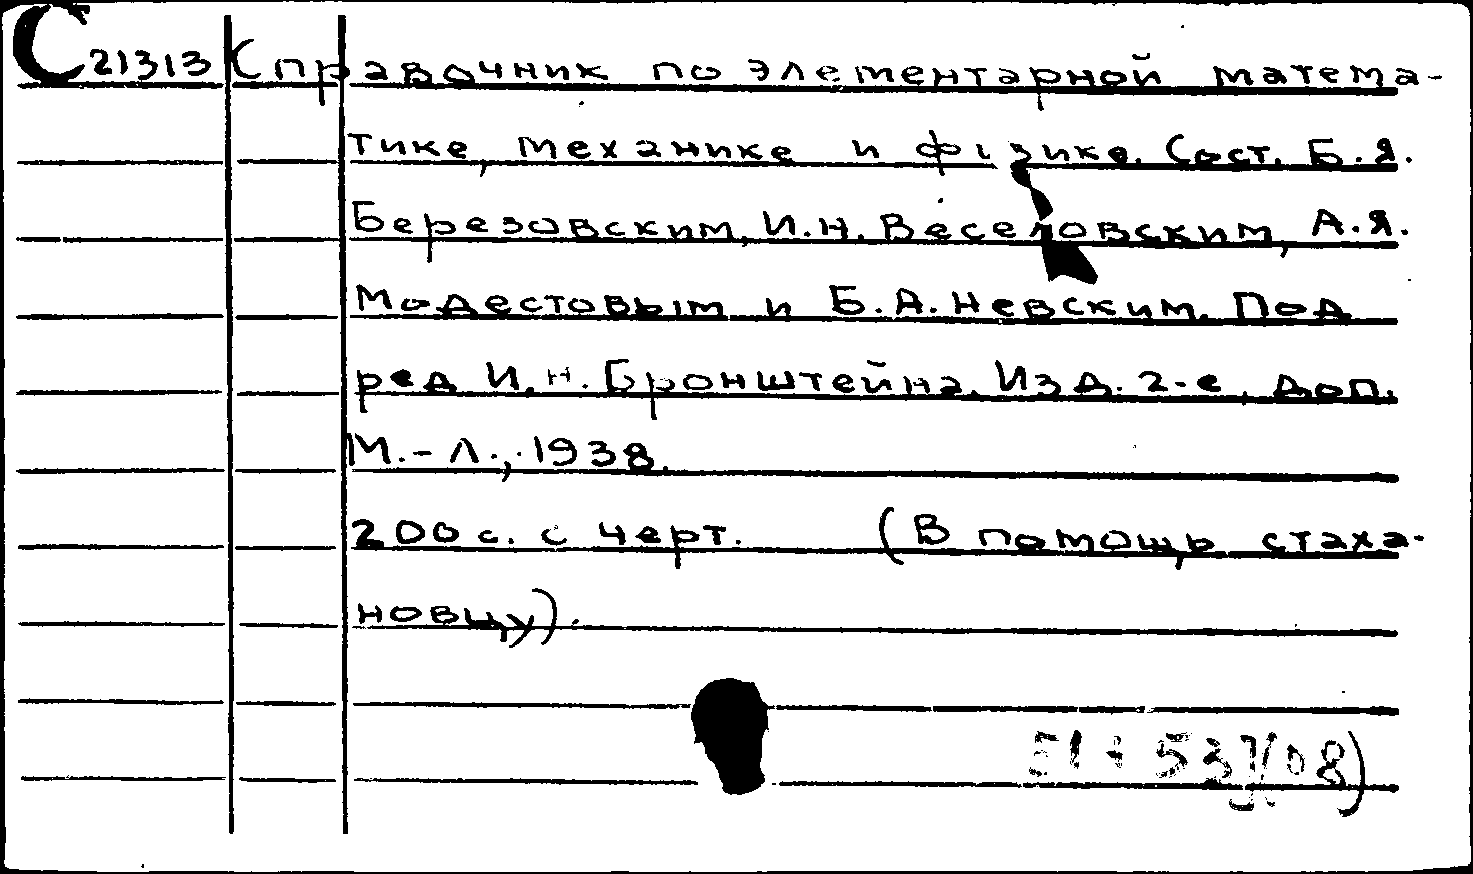 С21313 Справочник по элементарной матема-
тике, механике и физике. Сост. Б.Я.
Березовским, И.Н. Веселовским, А.Я.
Модестовым и Б.А. Невским. Под
ред И.Н. Бронштейна. Изд. 2-е, доп.
М.-Л., 1938.
200 с. с черт. (В помощь стаха-
новцу).
51+53](08)